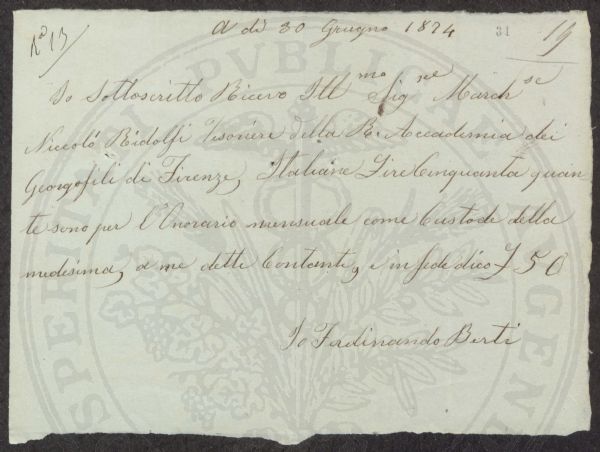 N° 13
A dì 30 Giugno 1874
31
19
Io Sottoscritto Ricevo Ill^mo Sig^re March^se
Niccolò Ridolfi Tesoriere della R. Accademia dei
Georgofili di Firenze, Italiane Lire Cinquanta quan-
te sono per l'Onorario mensuale come Custode della
medesima, a me dette Contanti, e in fede dico £ 50
Io Ferdinando Berti